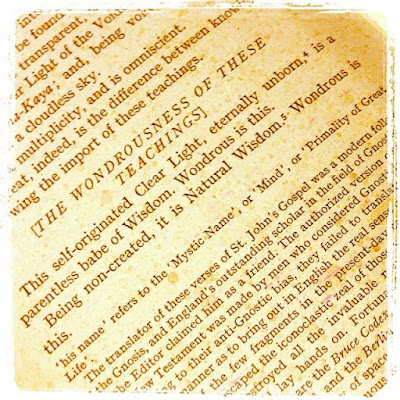 be found
transparent,
r Light of the Void
-Kaya', and, being
a cloudless sky.
multiplicity, and is omniscient.
eat, indeed, is the difference between know
wing the import of these teachings.
[THE WONDROUSNESS OF THESE
TEACHINGS]
This self-originated Clear Light, eternally unborn,⁴ is a
parentless babe of Wisdom. Wondrous is this.
Being non-created, it is Natural Wisdom.⁵ Wondrous is
this.
'his name' refers to the 'Mystic Name', or 'Mind', or 'Primality of Great
Life'.
The translator of these verses of St. John's Gospel was a modern
the Gnosis, and England's outstanding scholar in the field of Gnos
the Editor claimed him as a friend. The authorized version
ew Testament was made by men who considered Gnost
ng to their anti-Gnostic bias, they failed to translat
manner as to bring out in English the real sense
of the few fragments in the present-da
scaped the iconoclastic zeal of those
stroyed all the invaluable
lay hands Fortun
are the Bruce Codex
and the
of space